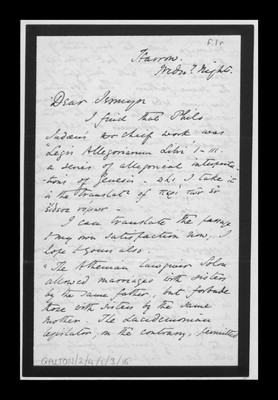 f.1r
Harrow.
Wedn? Night.
Dear
I find that Philo
Judaeus' chief work was
"Legis Allegoriarum Libri" I–III.
a series of allegorical interpreta-
-tions of Genesis. wh: I take it
is the translatn of περὶ τῶν ἐν
εἴδει νόμων.
I can translate the passage
to my own satisfaction now, I
hope to yours also
"The Athenian lawgiver Solon
allowed marriages with sisters
by the same father, but forbade
those with sisters by the same
mother. The Lacedaemonian
legislator, on the contrary, permitted
GALTON/2/4/1/3/16